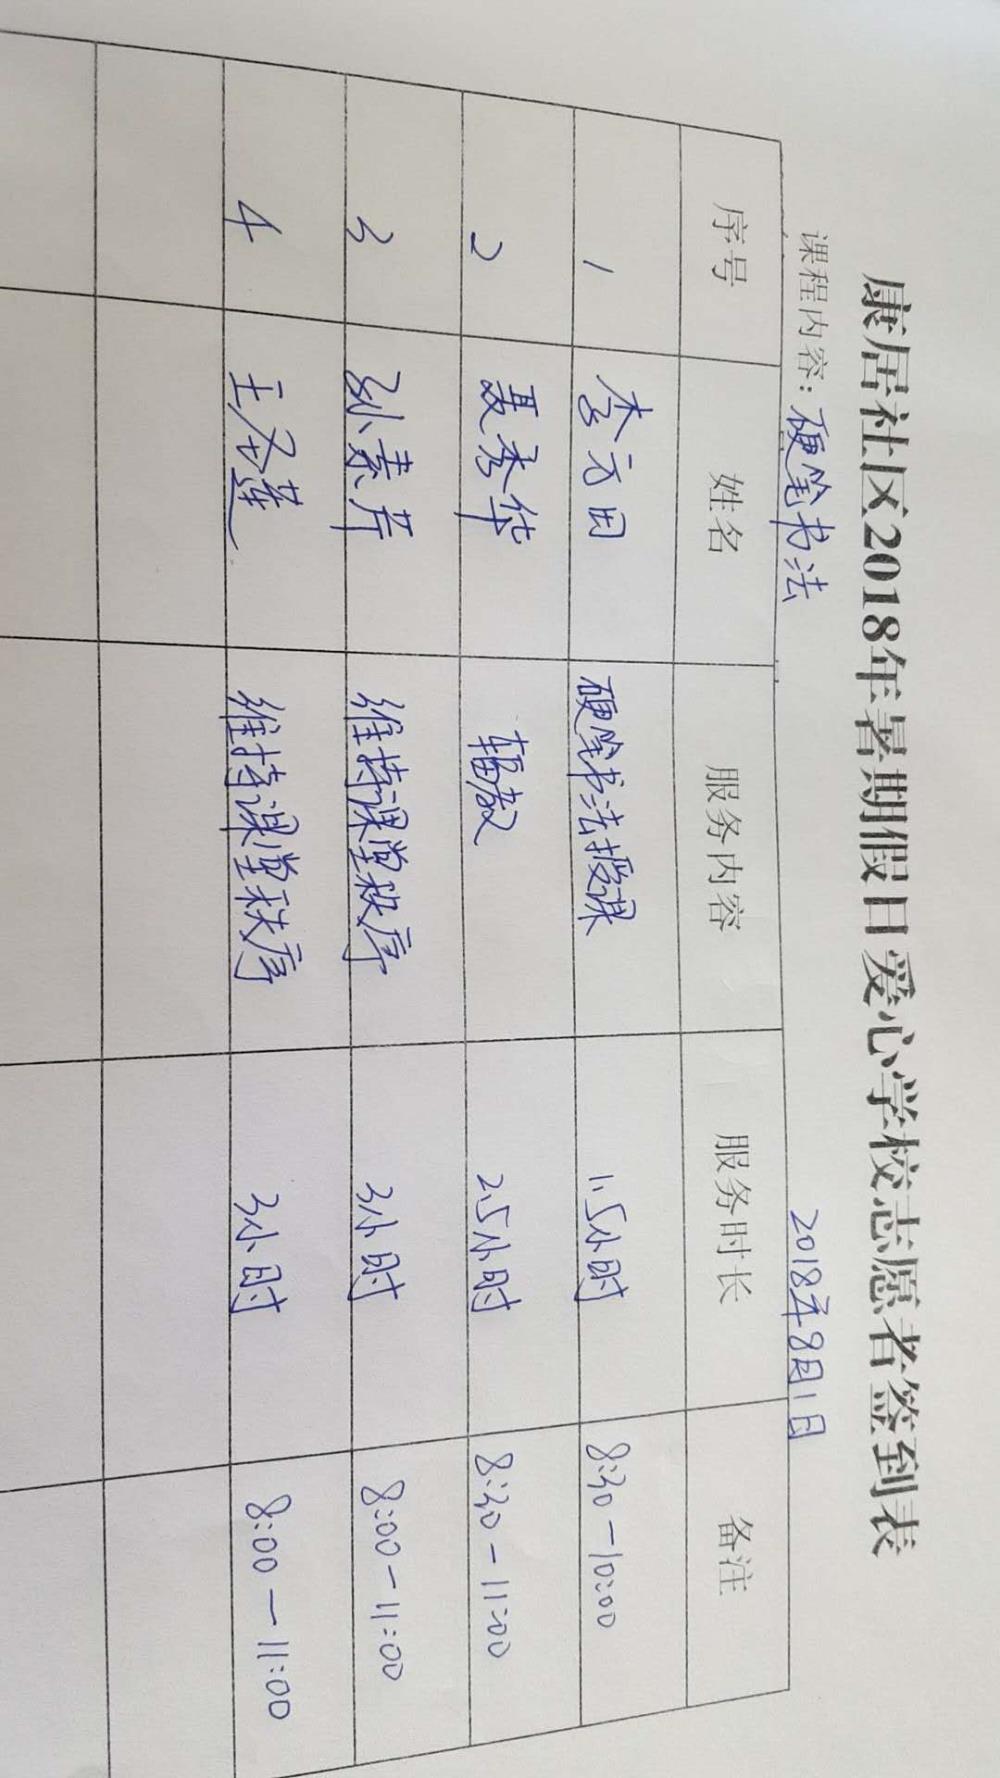 康居社区2018年暑期假日爱心学校志愿者签到表
课程内容：硬笔书法 2018年8月1日
序号 姓名 服务内容 服务时长 备注
1 李元田 硬笔书法授课 1.5小时 8:30-10:00
2 聂秀华 辅教 2.5小时 8:30-11:00
3 孙素芹 维持课堂秩序 3小时 8:00-11:00
4 王冷莲 维持课堂秩序 3小时 8:00-11:00